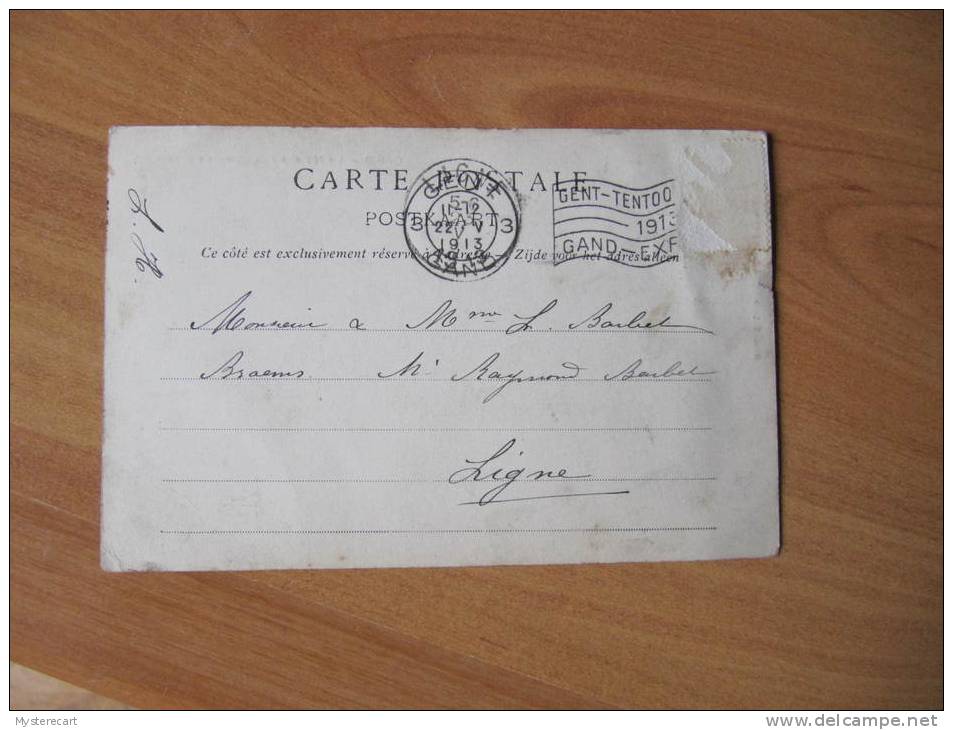 CARTE POSTALE
POSTKAART
Ce côté est exclusivement réservé à l'adresse. — Zijde voor het adres alleen
GENT
3 3
22 V
1913
GAND
GENT-TENTOO
1913
GAND-EXP
Monsieur & Mme L. Barbet
Braems. Mr Raymond Barbet
Ligne
Mysterecart
www.delcampe.net